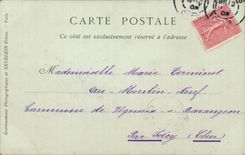 CARTE POSTALE
Ce côté est exclusivement réservé à l'adresse
Mademoiselle Marie
au Moulin Neuf
Commune de Vignoux s Barangeon
Par (Cher)
Etablissements Photographiques de NEURDEIN Frères. - Paris